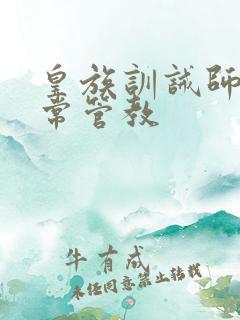 皇族訓誡師
常管教
牛有成
未经同意禁止转载